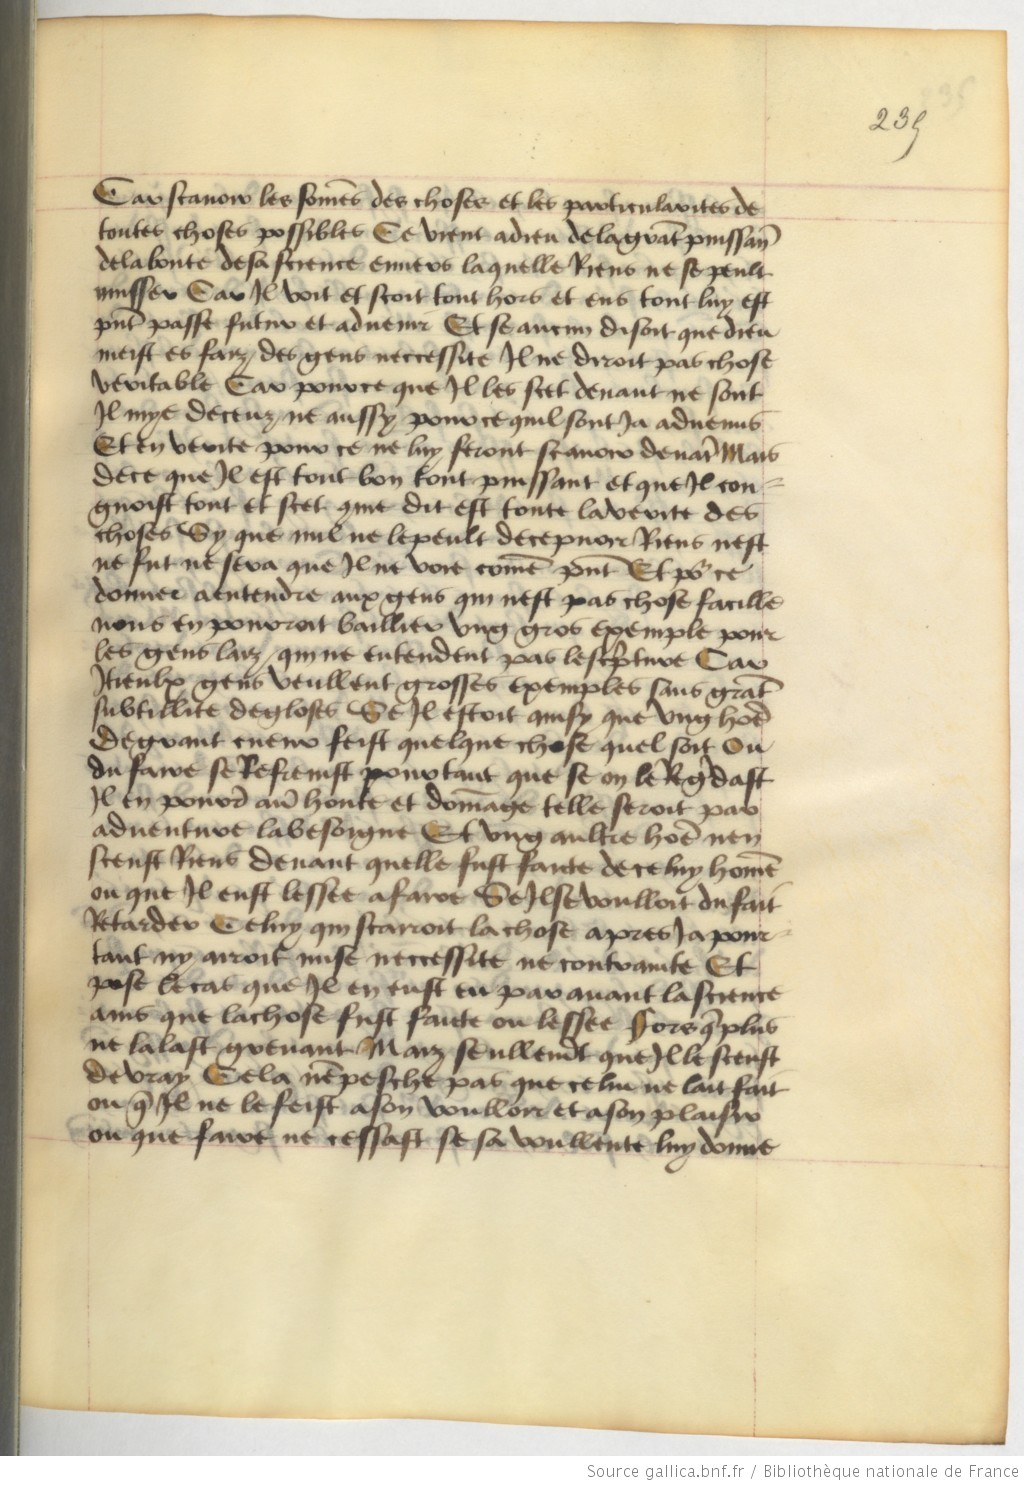 235
Car scauoir les sommes des choses et les particularites de
toutes choses possibles Ce vient a dieu de la grāt puissan
de la bonte de sa science enuers laquelle Riens ne se peult
musser Car Il voit et scoit tout hors et ens tout luy est
pn̄t passe futur et aduenir Et se aucun disoit que dieu
meist es faiz des gens neccessite Il ne diroit pas chose
veritable Car pource que Il les scet deuant ne sont
Il mye deceuz ne aussy pource quil sont Ja aduenus
Et en verite pour ce ne luy feront scauoir deuāt Mais
de ce que Il est tout bon tout puissant et que Il con-
gnoist tout et scet q̄ dit est toute la verite des
choses Sy que nul ne le peult decepuoir Riens nest
ne fut ne sera que Il ne voie com̄e pn̄t Et po' ce
donner a entendre aux gens qui nest pas chose facille
nous en pouroit baillier vng gros exemple pour
les gens laiz qui ne entendent pas lescripture Car
Itieulx gens veullent grosses exemples sans grāt
subtillite de gloses Se Il estoit ainsy que vng hoē
de grant cueur feist quelque chose quel soit Ou
du faire se Refrenist pourtant que se on le Regdast
Il en pouroit au' honte et dommage telle seroit par
aduenture la besoigne Et vng aultre hoē nen
sceust Riens deuant quelle fust faicte de celuy hom̄e
ou que Il eust lessee a faire Se Il se voulloit du fait
Retarder Celuy qui scarroit la chose apres Ja pour-
tant ny airoit mise neccessite ne contrainte Et
pose le cas que Il en eust eu par auant la science
ains que la chose fust faicte ou lessee Fors q̄ plus
ne lalast greuant Maiz seullemēt que Il le sceust
de vray Cela nēpesche pas que celui ne lait fait
ou q̄ Il ne le feist a son voulloir et a son plaisir
ou que faire ne cessast se sa voullente luy donne
Source gallica.bnf.fr / Bibliothèque nationale de France